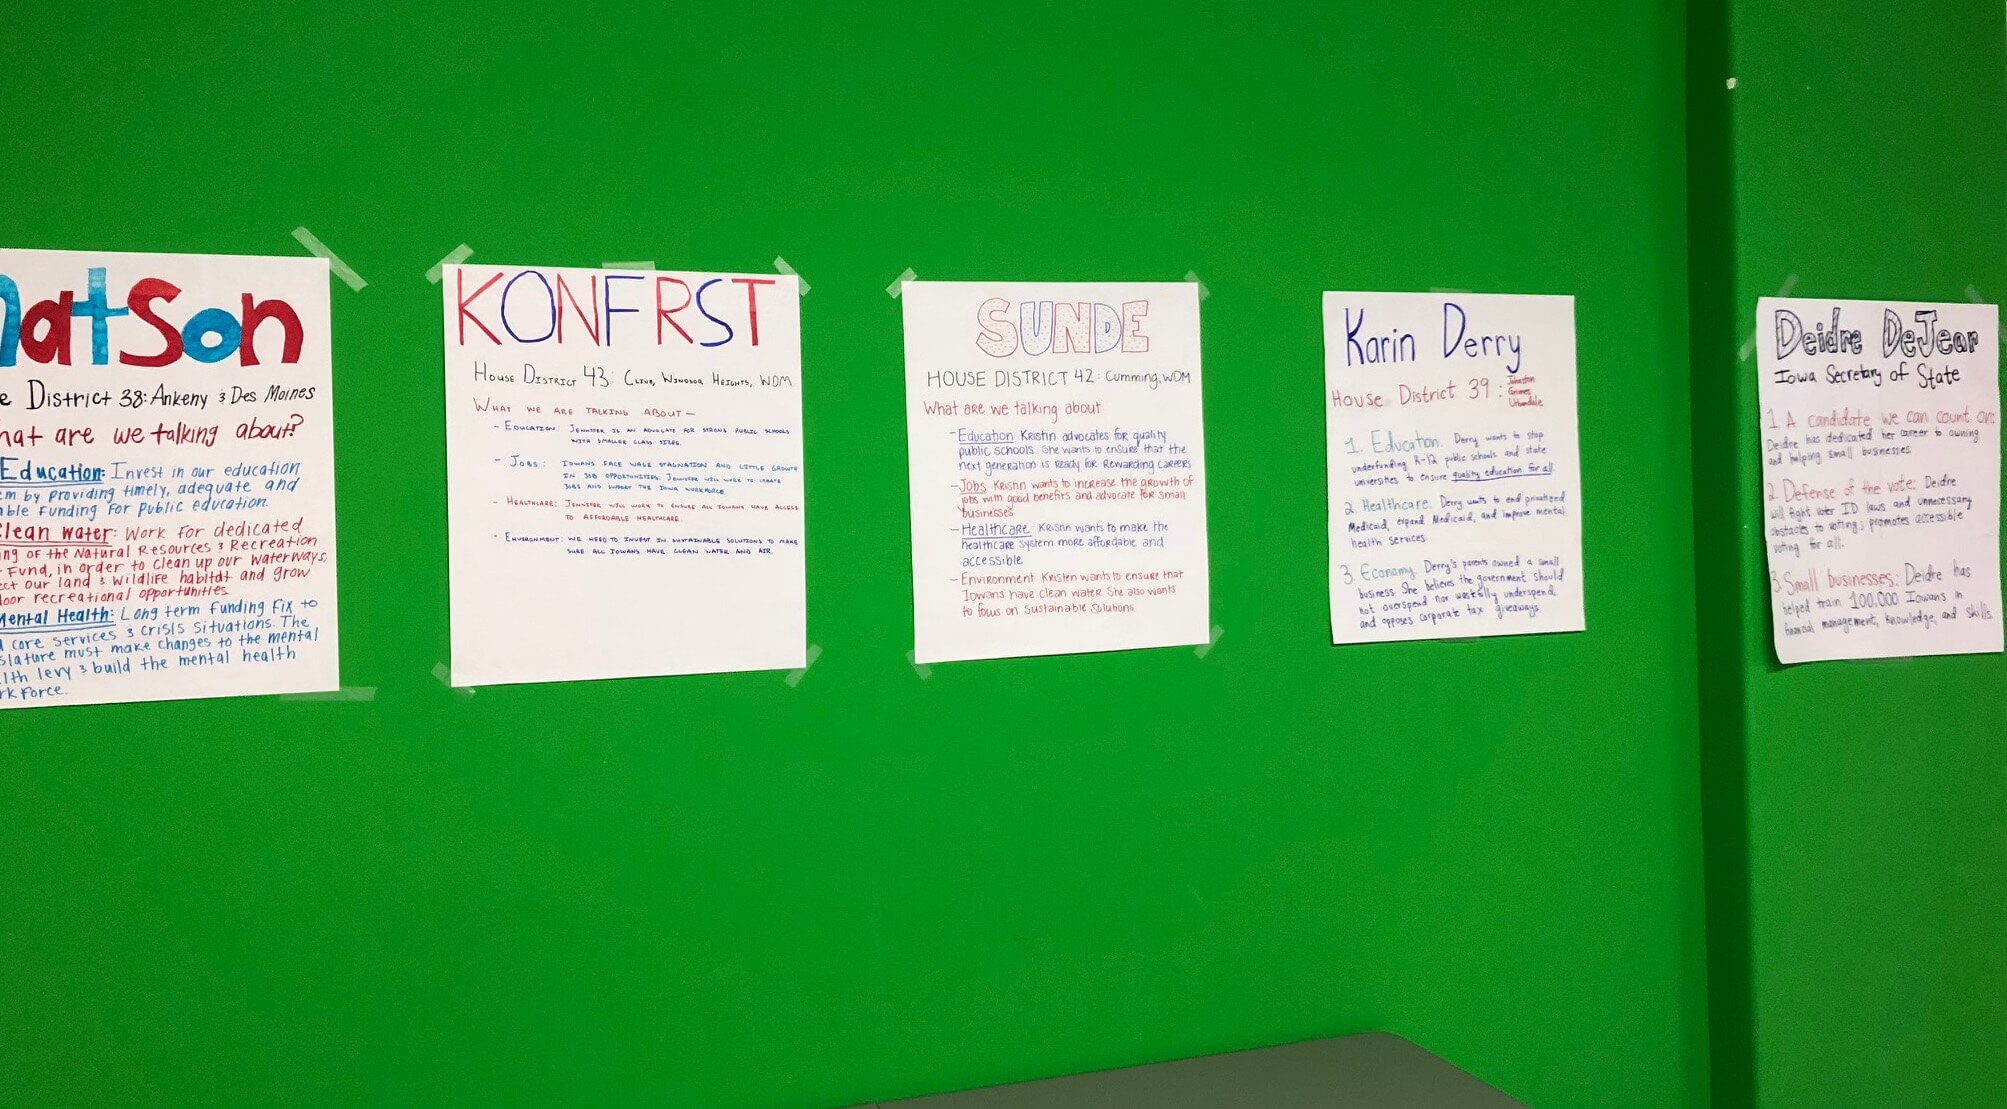 Matson
e District 38: Ankeny & Des Moines
hat are we talking about?
Education: Invest in our education
em by providing timely, adequate and
able funding for public education.
Clean water: Work for dedicated
ng of the Natural Resources & Recreation
Fund, in order to clean up our waterways,
ect our land & wildlife habitat and grow
door recreational opportunities.
Mental Health: Long term funding fix to
d core services & crisis situations. The
islature must make changes to the mental
alth levy & build the mental health
rkforce.
KONFRST
House District 43: Clive, Windsor Heights, WDM
What we are talking about—
- Education: Jennifer is an advocate for strong public schools
with smaller class sizes.
- Jobs: Iowans face wage stagnation and little growth
in job opportunities. Jennifer will work to create
jobs and support the Iowa workforce.
- Healthcare: Jennifer will work to ensure all Iowans have access
to affordable healthcare.
- Environment: We need to invest in sustainable solutions to make
sure all Iowans have clean water and air.
SUNDE
HOUSE DISTRICT 42: Cumming, WDM
What are we talking about:
- Education: Kristin advocates for quality
public schools. She wants to ensure that the
next generation is ready for rewarding careers
- Jobs: Kristin wants to increase the growth of
jobs with good benefits and advocate for small
businesses
- Healthcare: Kristin wants to make the
healthcare system more affordable and
accessible
- Environment: Kristen wants to ensure that
Iowans have clean water. She also wants
to focus on sustainable solutions
Karin Derry
House District 39: Johnston
Grimes
Urbandale
1. Education: Derry wants to stop
underfunding K-12 public schools and state
universities to ensure quality education for all.
2. Healthcare: Derry wants to end privatized
Medicaid, expand Medicaid, and improve mental
health services.
3. Economy: Derry's parents owned a small
business. She believes the government should
not overspend nor wastefully underspend,
and opposes corporate tax giveaways
Deidre DeJear
Iowa Secretary of State
1. A candidate we can count on:
Deidre has dedicated her career to owning
and helping small businesses
2. Defense of the vote: Deidre
will fight voter ID laws and unnecessary
obstacles to voting; promotes accessible
voting for all.
3. Small businesses: Deidre has
helped train 100,000 Iowans in
financial management, knowledge, and skills.